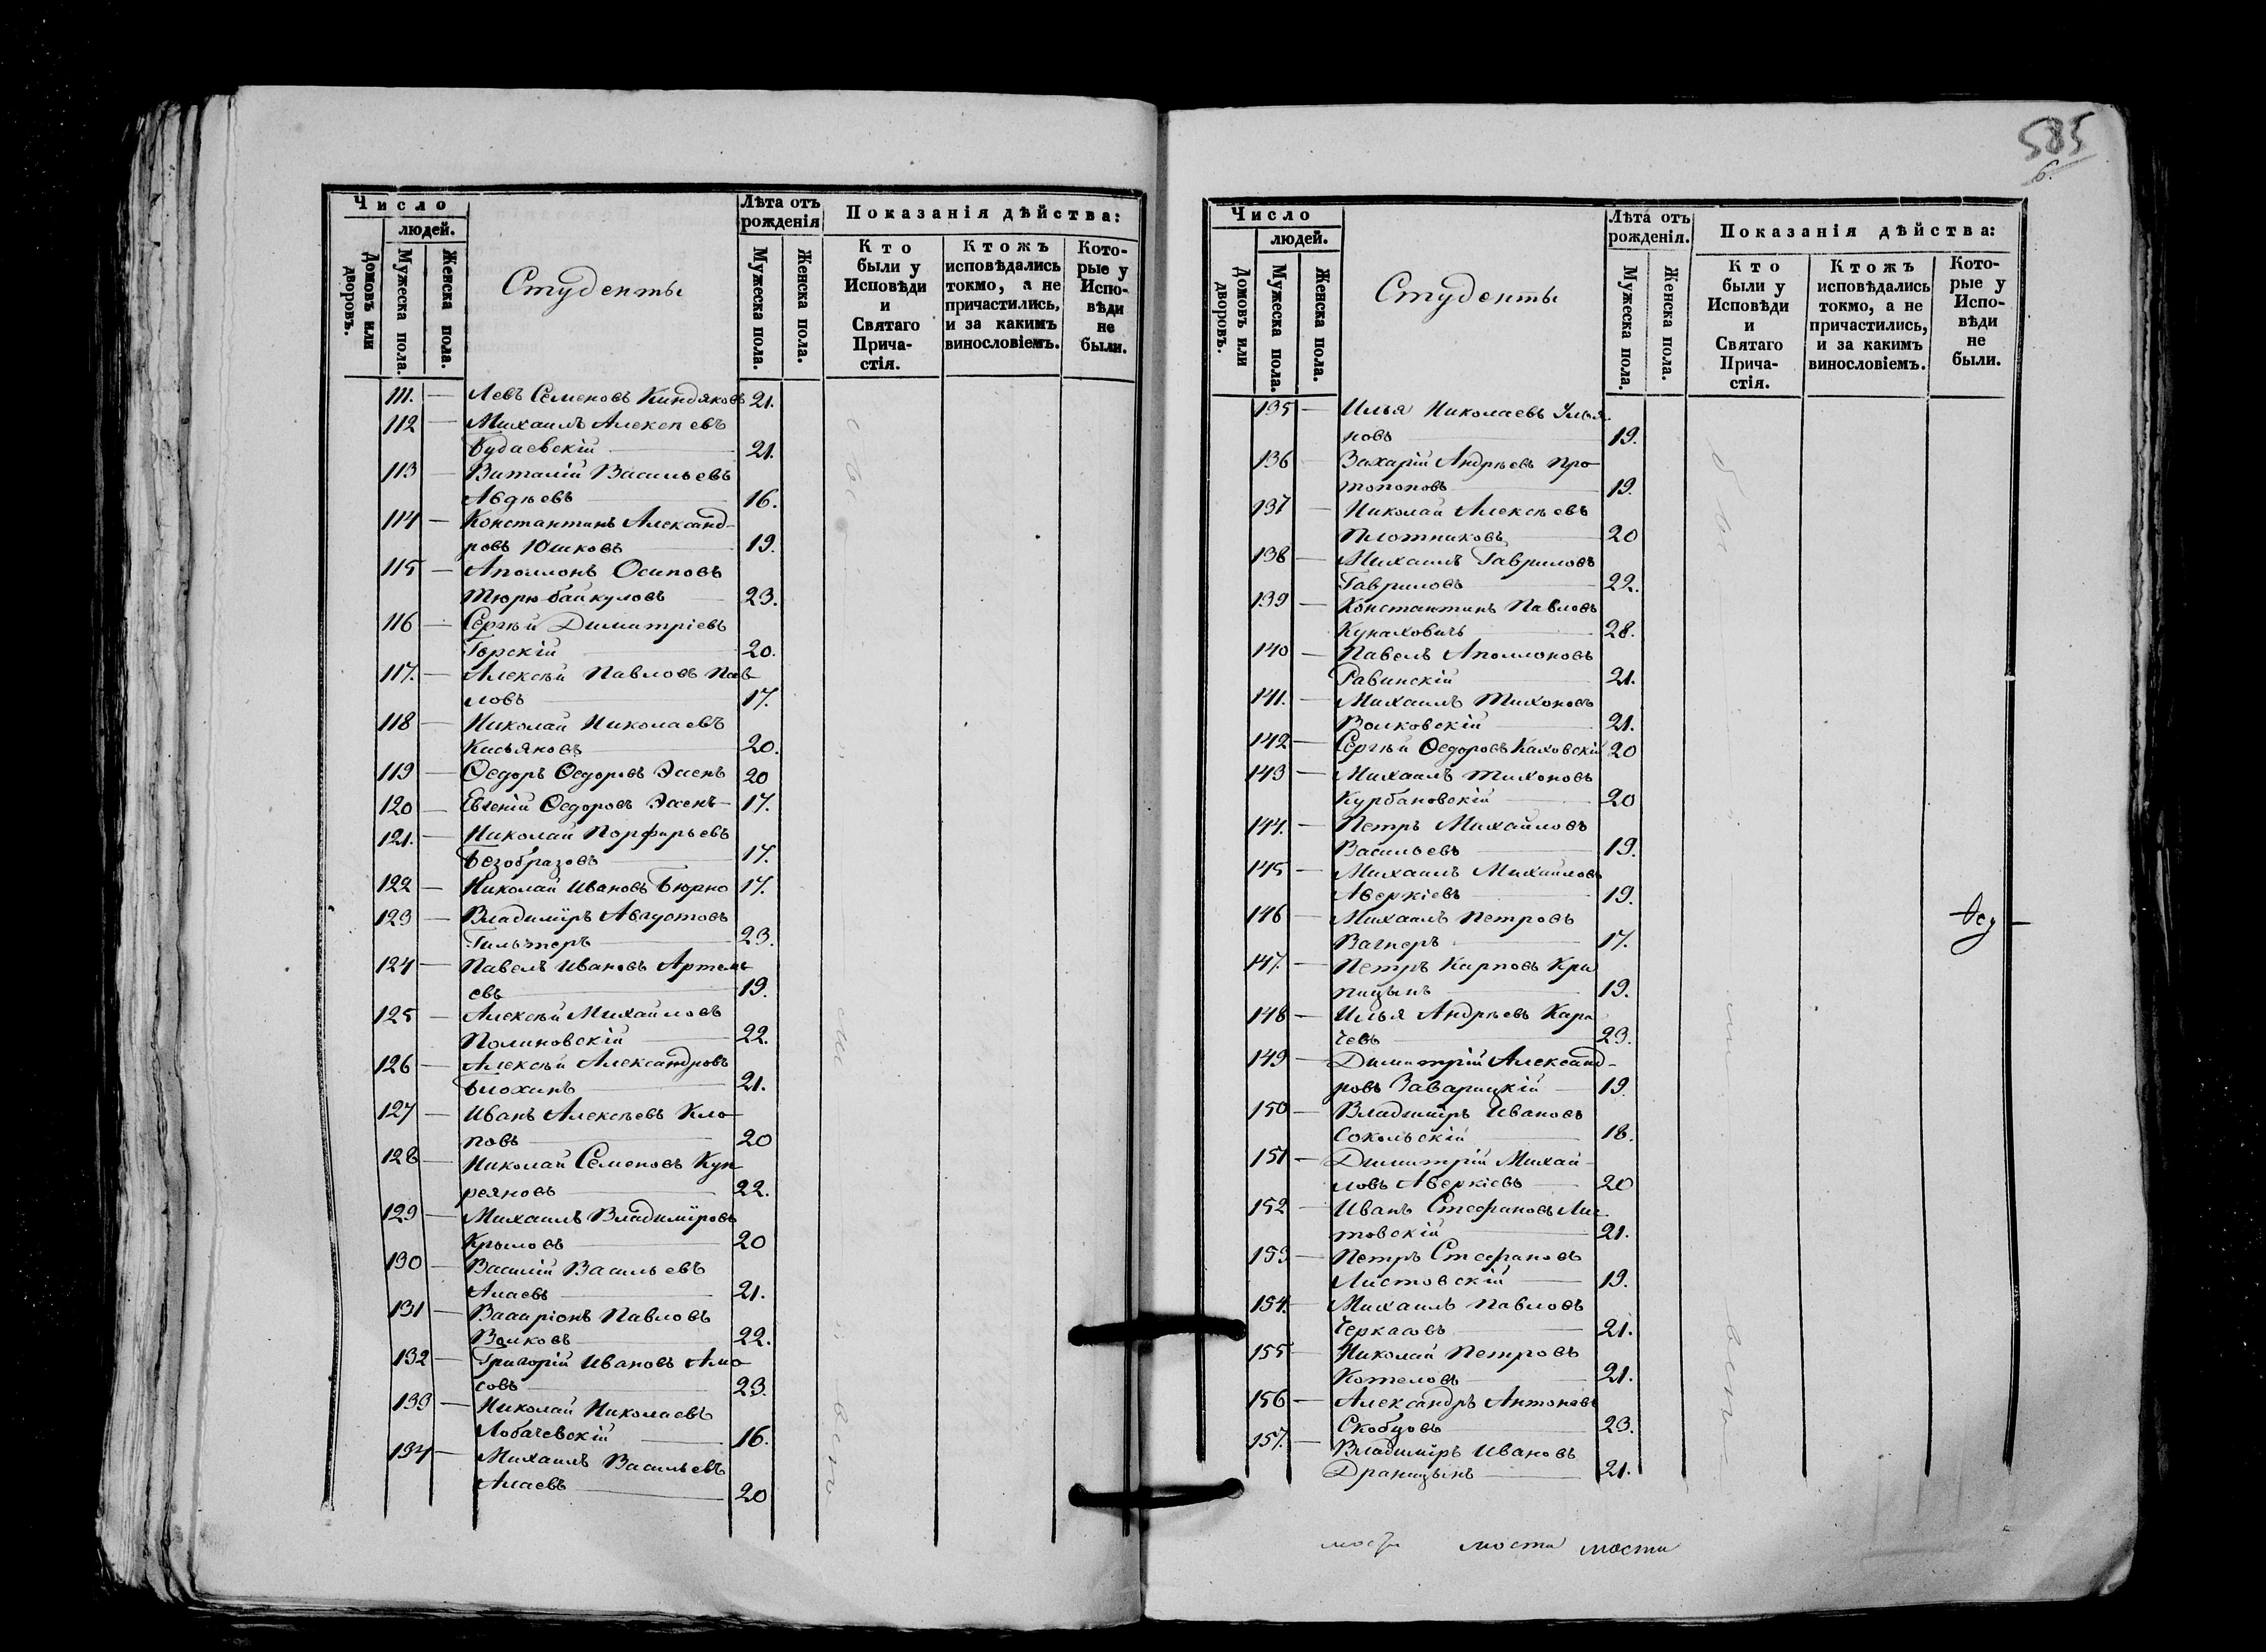 Число
людей.
Домовъ или дворовъ.
Мужеска пола.
Женска пола.
Студенты
Лѣта отъ рожденія
Мужеска пола.
Женска пола.
Показанія дѣйства:
Кто были у Исповѣди и Святаго Прича-стія.
Ктожъ исповѣдались токмо, а не причастились, и за какимъ винословіемъ.
Кото-рые у Испо-вѣди не были.
111. — Левъ Семеновъ Киндяковъ 21.
112 — Михаилъ Алексѣевъ
Будаевскій 21.
113 — Виталій Васильевъ
Авдѣевъ 16.
114 — Константинъ Александ-
ровъ Юшковъ 19.
115 — Аполлонъ Осиповъ
Тюрюбайкуловъ 23.
116 — Сергѣй Димитріевъ
Горскій 20.
117. — Алексѣй Павловъ Пав-
ловъ 17.
118 — Николай Николаевъ
Касьяновъ 20.
119 — Ѳедоръ Ѳедоровъ Эсенъ 20
120 — Евгеній Ѳедоровъ Эсенъ — 17.
121. — Николай Порфирьевъ
Безобразовъ 17.
122 — Николай Ивановъ Бюрно 17.
123 — Владиміръ Августовъ
Гильтеръ 23.
124 — Павелъ Ивановъ Артемь-
евъ 19.
125 — Алексѣй Михайловъ
Полиновскій 22.
126 — Алексѣй Александровъ
Блохинъ 21.
127 — Иванъ Алексѣевъ Кло-
повъ 20
128 — Николай Семеновъ Куп-
реяновъ 22.
129 — Михаилъ Владиміровъ
Крыловъ 20
130 — Василій Васильевъ
Алаевъ 21.
131 — Валиріонъ Павловъ
Волковъ 22.
132 — Григорій Ивановъ Амо-
совъ 23.
133 — Николай Николаевъ
Лобачевскій 16.
134 — Михаилъ Васильевъ
Алаевъ 20
585
6.
Число
людей.
Домовъ или дворовъ.
Мужеска пола.
Женска пола.
Студенты
Лѣта отъ рожденія.
Мужеска пола.
Женска пола.
Показанія дѣйства:
Кто были у Исповѣди и Святаго Прича-стія.
Ктожъ исповѣдались токмо, а не причастились, и за какимъ винословіемъ.
Кото-рые у Испо-вѣди не были.
135 — Илья Николаевъ Улья-
новъ 19.
136 Захарій Андрѣевъ Про-
топоповъ 19.
137 — Николай Алексѣевъ
Плотниковъ 20
138 — Михаилъ Гавриловъ
Гавриловъ 22.
139 — Константинъ Павловъ
Кунаховичъ 28.
140 — Павелъ Аполлоновъ
Равинскій 21.
141. — Михаилъ Тихоновъ
Волковскій 21.
142 — Сергѣй Ѳедоровъ Каховскій 20
143 — Михаилъ Тихоновъ
Курбановскій 20
144. — Петръ Михайловъ
Васильевъ 19.
145 — Михаилъ Михайловъ
Аверкіевъ 19.
146 — Михаилъ Петровъ
Вагнеръ 17.
147. — Петръ Карповъ Кра-
пицынъ 19.
148 — Илья Андрѣевъ Кара-
чевъ 23.
149 — Димитрій Александ-
ровъ Заварицкій — 19.
150 — Владиміръ Ивановъ
Сокольскій 18.
151 — Димитрій Михай-
ловъ Аверкіевъ 20
152 — Иванъ Стефановъ Лис-
товскій 21.
153 — Петръ Стефановъ
Листовскій 19.
154. — Михаилъ Павловъ
Черкасовъ 21.
155 — Николай Петровъ
Котеловъ 21.
156 — Александръ Антоновъ
Скобцовъ 23.
157. — Владиміръ Ивановъ
Драницынъ 21.
мости мости